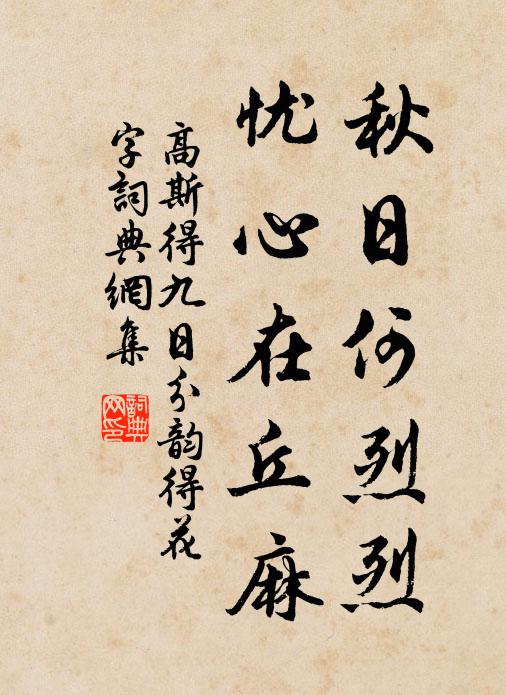 秋日何烈烈
忧心在丘麻
高斯得九日分韵得花
字詞典網集
詞典
网印